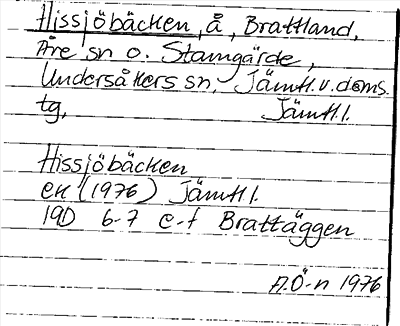 Hissjöbäcken, å, Brattland,
Åre sn o. Stamgärde,
Undersåkers sn, Jämtl.v.doms.
tg, Jämtl.l.
Hissjöbäcken
ek (1976) Jämtl l.
19D 6-7 e-f Brattäggen
A.Ö-n 1976